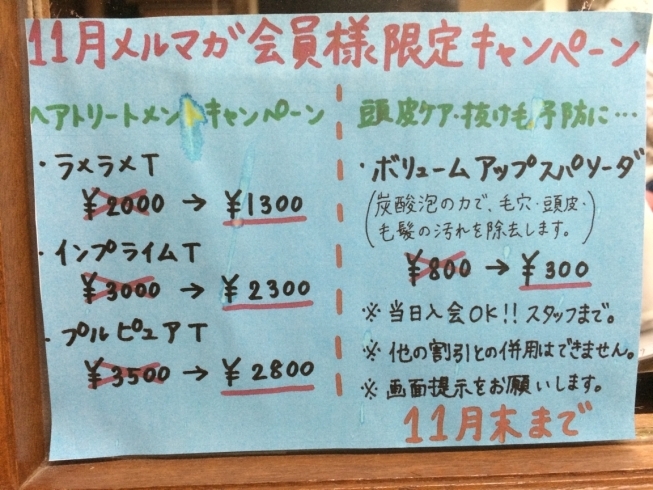 11月メルマガ会員様限定キャンペーン
ヘアトリートメントキャンペーン
・ラメラメT
¥2000 → ¥1300
・インプライムT
¥3000 → ¥2300
・プルピュアT
¥3500 → ¥2800
頭皮ケア・抜け毛予防に…
・ボリュームアップスパソーダ
(炭酸泡の力で、毛穴・頭皮・
毛髪の汚れを除去します。)
¥800 → ¥300
※当日入会OK!!スタッフまで。
※他の割引との併用はできません。
※画面提示をお願いします。
11月末まで